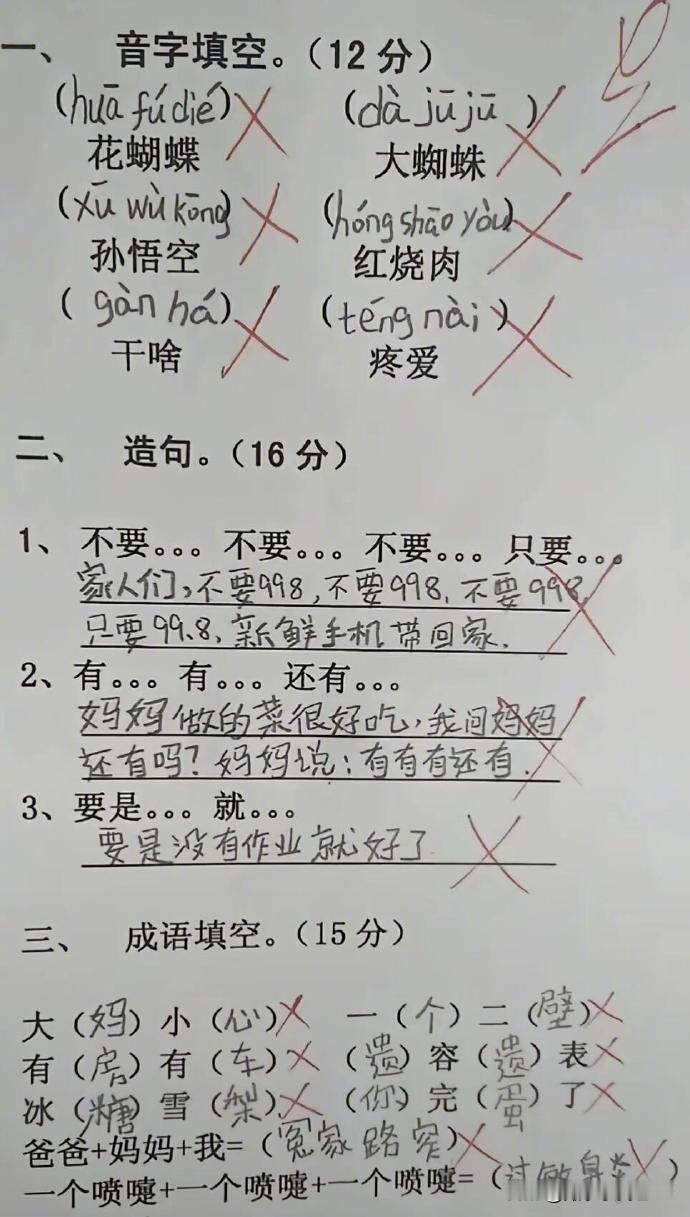 一、 音字填空。(12分)
(huā fú dié) (dà jū jū )
花蝴蝶 大蜘蛛
(xū wù kōng) (hóng shāo yòu)
孙悟空 红烧肉
( gàn há) (téng nài )
干啥 疼爱
二、 造句。(16分)
1、不要。。。不要。。。不要。。。只要。。。
家人们,不要998,不要998,不要998,
只要99.8,新鲜手机带回家.
2、有。。。有。。。还有。。。
妈妈做的菜很好吃,我问妈妈
还有吗?妈妈说:有有有还有.
3、要是。。。就。。。
要是没有作业就好了
三、 成语填空。(15分)
大(妈)小(心) 一(个)二(壁)
有(房)有(车) (遗)容(遗)表
冰(糖)雪(梨) (你)完(蛋)了
爸爸+妈妈+我=(冤家路窄)
一个喷嚏+一个喷嚏+一个喷嚏=(过敏鼻炎)